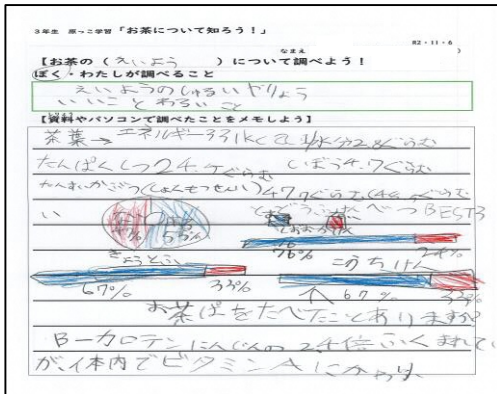 3年生 原っこ学習「お茶について知ろう！」
R2・11・6
なまえ
【お茶の（えいよう）について調べよう！
ぼく・わたしが調べること
えいようのしゅるいやりょう
いいこととわるいこと
【資料やパソコンで調べたことをメモしよう】
茶葉→エネルギー331kcal 水分2.8ぐらむ
たんぱくしつ24.7ぐらむ しぼう4.7ぐらむ
47.7ぐらむ
い
BEST3
76%
24%
きょうとふ
こうちけん
67% 33%
67% 33%
お茶ぱをたべたことありますか
Bーカロテン にんじんの2.4倍ふくまれてい
が、体内でビタミンAにかわ